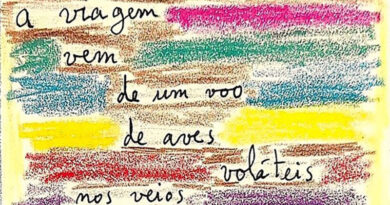 a viagem
vem
de um voo
de aves
voláteis
nos veios